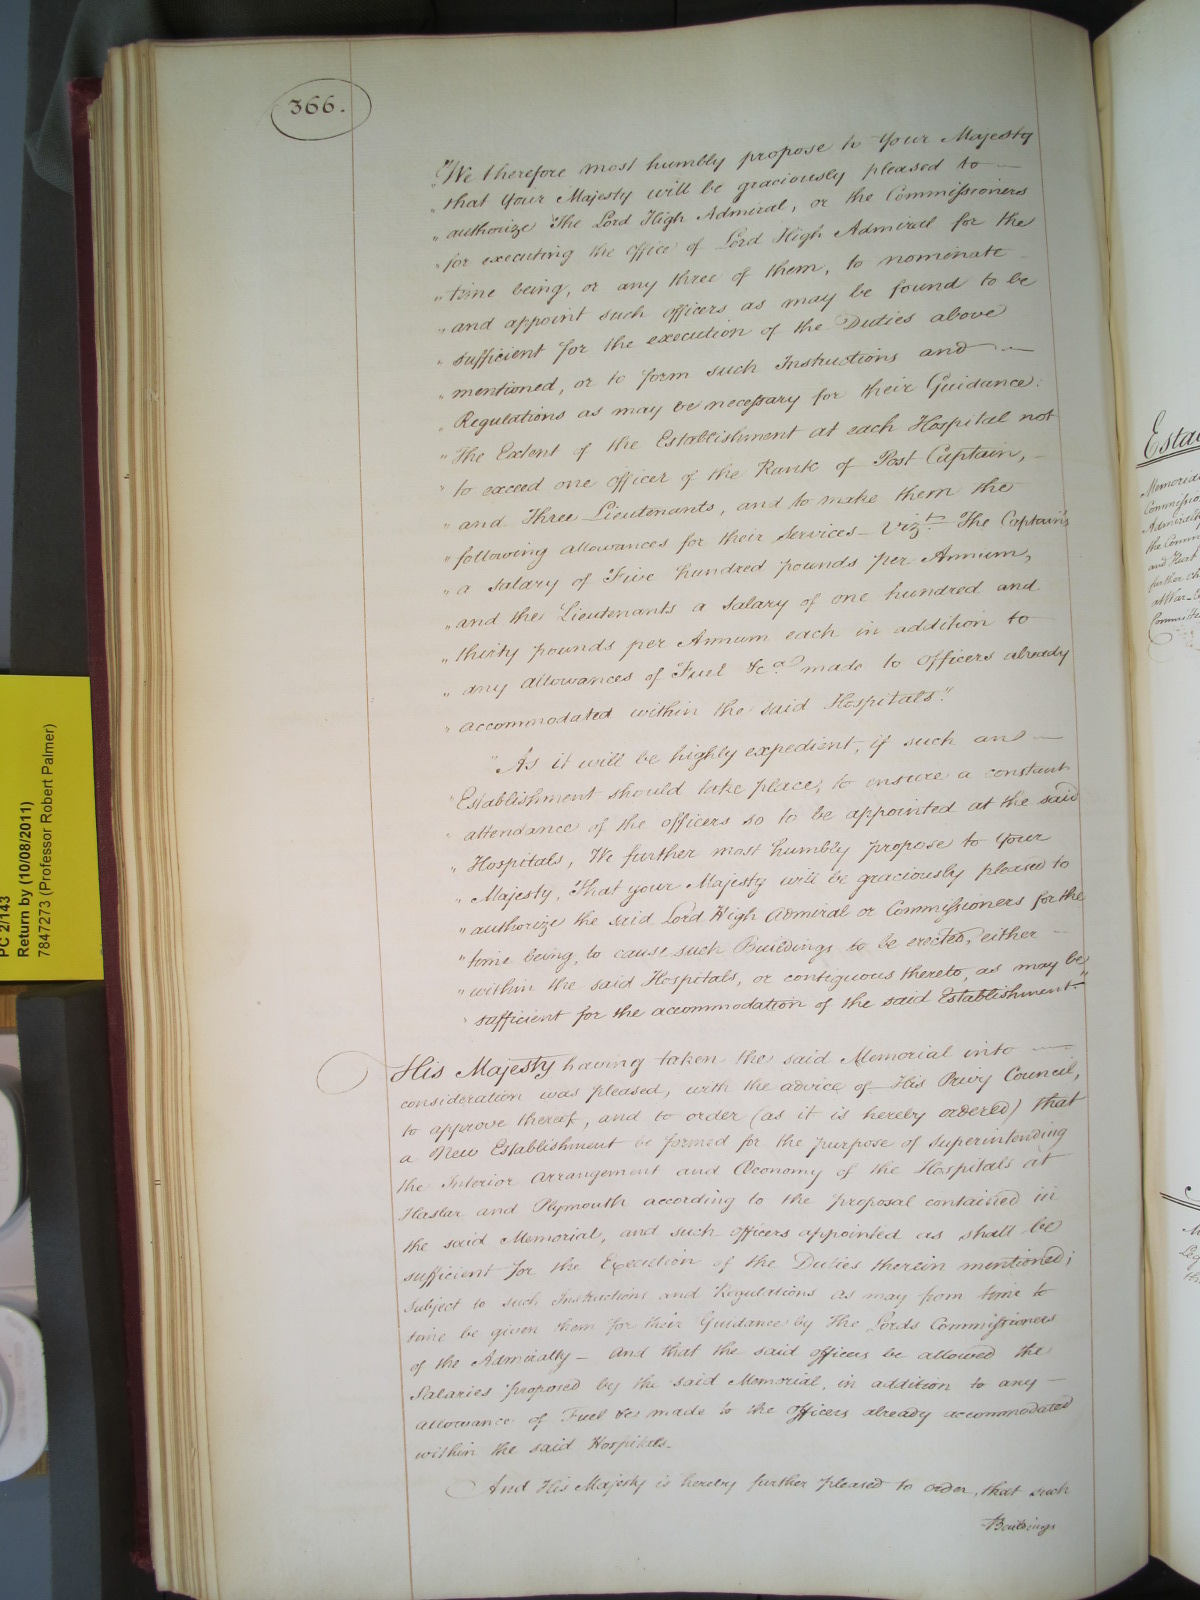 366.
"We therefore most humbly propose to Your Majesty
" that Your Majesty will be graciously pleased to —
" authorize The Lord High Admiral, or the Commissioners
" for executing the office of Lord High Admiral for the
" time being, or any three of them, to nominate
" and appoint such officers as may be found to be
" sufficient for the execution of the Duties above
" mentioned, or to form such Instructions and —
" Regulations as may be necessary for their Guidance:
" The Extent of the Establishment at each Hospital not
" to exceed one officer of the Rank of Post Captain, —
" and Three Lieutenants, and to make them the
" following allowances for their Services — Vizt. The Captains
" a salary of Five hundred pounds per Annum,
" and the Lieutenants a Salary of one hundred and
" thirty pounds per Annum each in addition to
" any allowances of Fuel &ca. made to officers already
" accommodated within the said Hospitals."
" As it will be highly expedient, if such an —
" Establishment should take place, to ensure a constant
" attendance of the officers so to be appointed at the said
" Hospitals, We further most humbly propose to Your
" Majesty, That your Majesty will be graciously pleased to
" authorize the said Lord High Admiral or Commissioners for the
" time being, to cause such Buildings to be erected, either —
" within the said Hospitals, or contiguous thereto, as may be
" sufficient for the accommodation of the said Establishment."
His Majesty having taken the said Memorial into —
consideration was pleased, with the advice of His Privy Council,
to approve thereof, and to order (as it is hereby ordered) that
a New Establishment be formed for the purpose of Superintending
the Interior Arrangement and Œconomy of the Hospitals at
Haslar and Plymouth according to the proposal contained in
the said Memorial, and such officers appointed as shall be
sufficient for the Execution of the Duties therein mentioned;
subject to such Instructions and Regulations as may from time to
time be given them for their Guidance by The Lords Commissioners
of the Admiralty — And that the said officers be allowed the
Salaries proposed by the said Memorial, in addition to any —
allowance of Fuel &c made to the officers already accommodated
within the said Hospitals.
And His Majesty is hereby further pleased to order, that such
Buildings
PC 2/143
Return by (10/08/2011)
7847273 (Professor Robert Palmer)